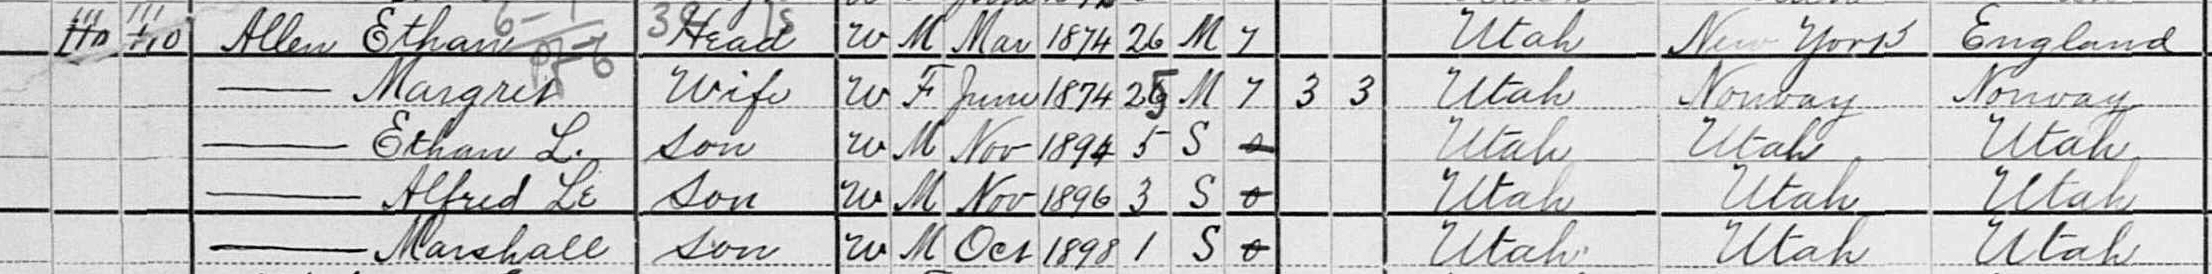 111 111 Allen Ethan Head W M Mar 1874 26 M 7 Utah New York England
Margrit Wife W F June 1874 25 M 7 3 3 Utah Norway Norway
Ethan L. Son W M Nov 1894 5 S 0 Utah Utah Utah
Alfred Le Son W M Nov 1896 3 S 0 Utah Utah Utah
Marshall Son W M Oct 1898 1 S 0 Utah Utah Utah